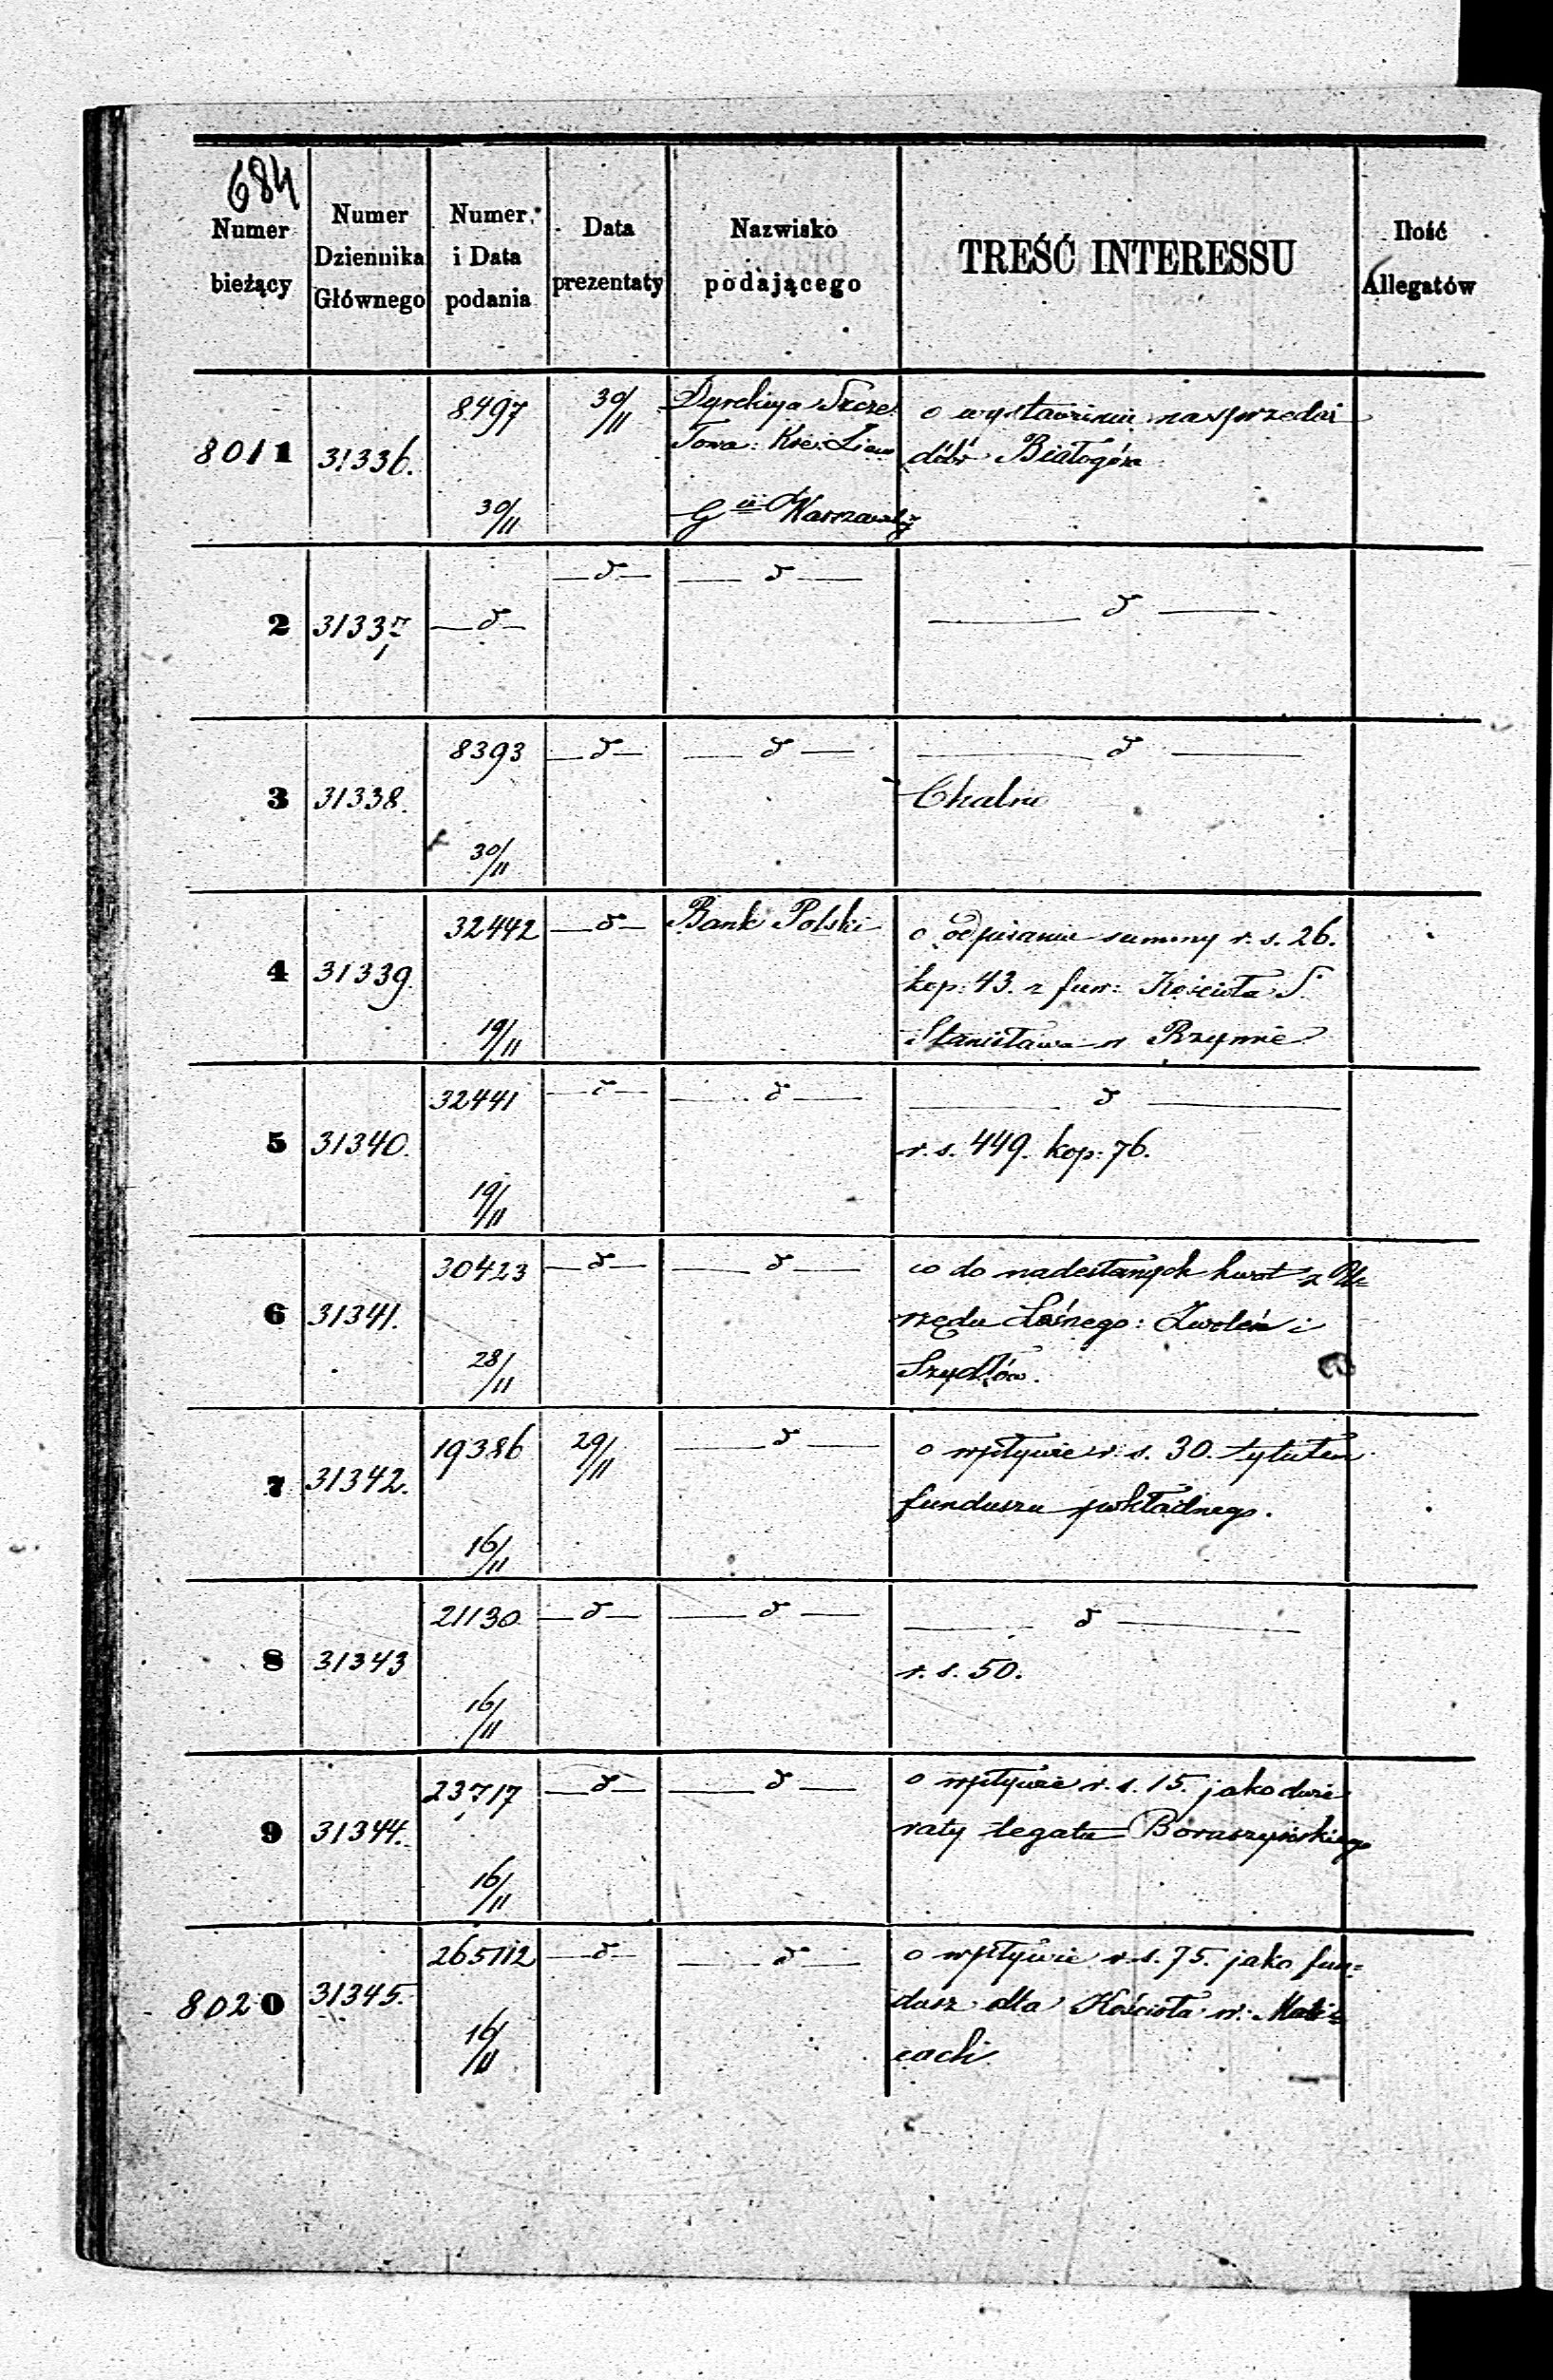 684
Numer bieżący
Numer Dziennika Głównego
Numer i Data podania
Data prezentaty
Nazwisko podającego
TREŚĆ INTERESSU
Ilość Allegatów
8011
31336.
8497
30/11
30/11
Dyrekcya Szcze:
Towa: Kre: Ziem
Gii Warszawskiej
o wystawieniu na sprzedaż
dóbr Białogóra
2
31337
— d —
— d —
— d —
— d —
3
31338.
8393
30/11
— d —
— d —
— d —
4
31339.
32442
19/11
— d —
Bank Polski
o odpisanie summy r. s. 26.
kop: 43. z fun: Kościoła S.
Stanisława w Rzymie
5
31340.
32441
19/11
— d —
— d —
— d —
r. s. 449. kop: 76.
6
31341.
30423
28/11
— d —
— d —
co do nadesłanych kwot z U=
rzędu Leśnego: Zwoleń i
Szydłów.
7
31342.
19386
16/11
29/11
— d —
o wpływie r. s. 30. tytułem
funduszu pokładnego.
8
31343
21130
16/11
— d —
— d —
— d —
r. s. 50.
9
31344.
23717
16/11
— d —
— d —
o wpływie r. s. 15. jako dwie
raty legatu
8020
31345.
16/11
— d —
— d —
o wpływie r. s. 75. jako fun=
dusz dla Kościoła w:
cach.